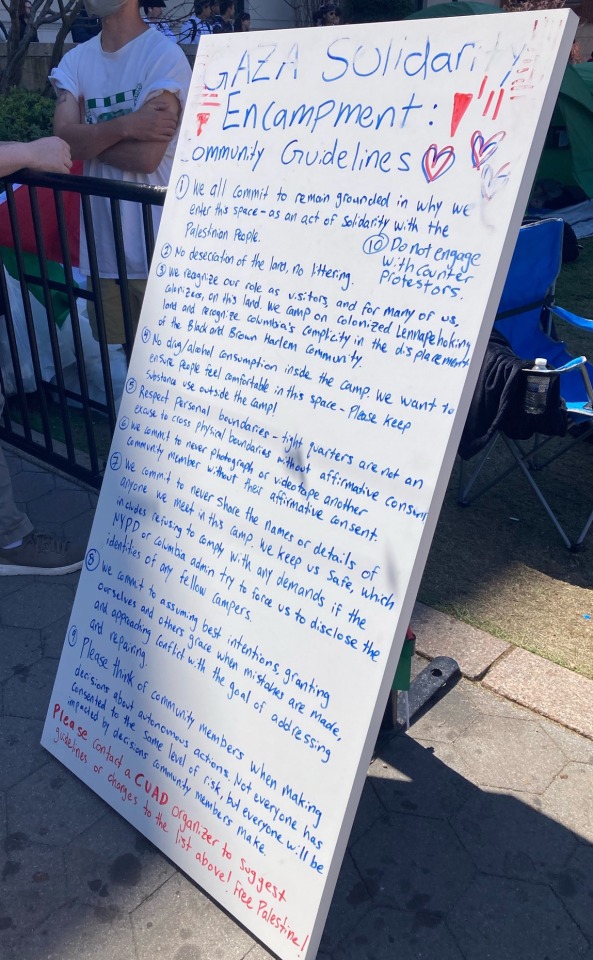 GAZA Solidarity
Encampment:
Community Guidelines
① We all commit to remain grounded in why we
enter this space - as an act of Solidarity with the
Palestinian People.
② No deseciation of the land, no littering.
③ We recognize our role as visitors, and for many of us,
colonizers, on this land. We camp on colonized Lennapehoking
land and recognize Columbia's complicity in the displacement
of the Black and Brown Harlem Community.
④ No drug/alcohol consumption inside the camp. We want to
ensure people feel comfortable in this space - Please keep
substance use outside the camp!
⑤ Respect personal boundaries - tight quarters are not an
excuse to cross physical boundaries without affirmative consent
⑥ We commit to never photograph or videotape another
community member without their affirmative consent.
⑦ We commit to never share the names or details of
anyone we meet in this camp. We keep us safe, which
includes refusing to comply with any demands if the
NYPD or Columbia admin try to force us to disclose the
identities of any fellow campers.
⑧ We commit to assuming best intentions, granting
ourselves and others grace when mistakes are made,
and approaching conflict with the goal of addressing
and repairing.
⑨ Please think of community members when making
decisions about autonomous actions. Not everyone has
consented to the same level of risk, but everyone will be
impacted by decisions community members make.
⑩ Do not engage
with counter
Protestors.
Please contact a CUAD organizer to suggest
guidelines or changes to the list above! Free Palestine!